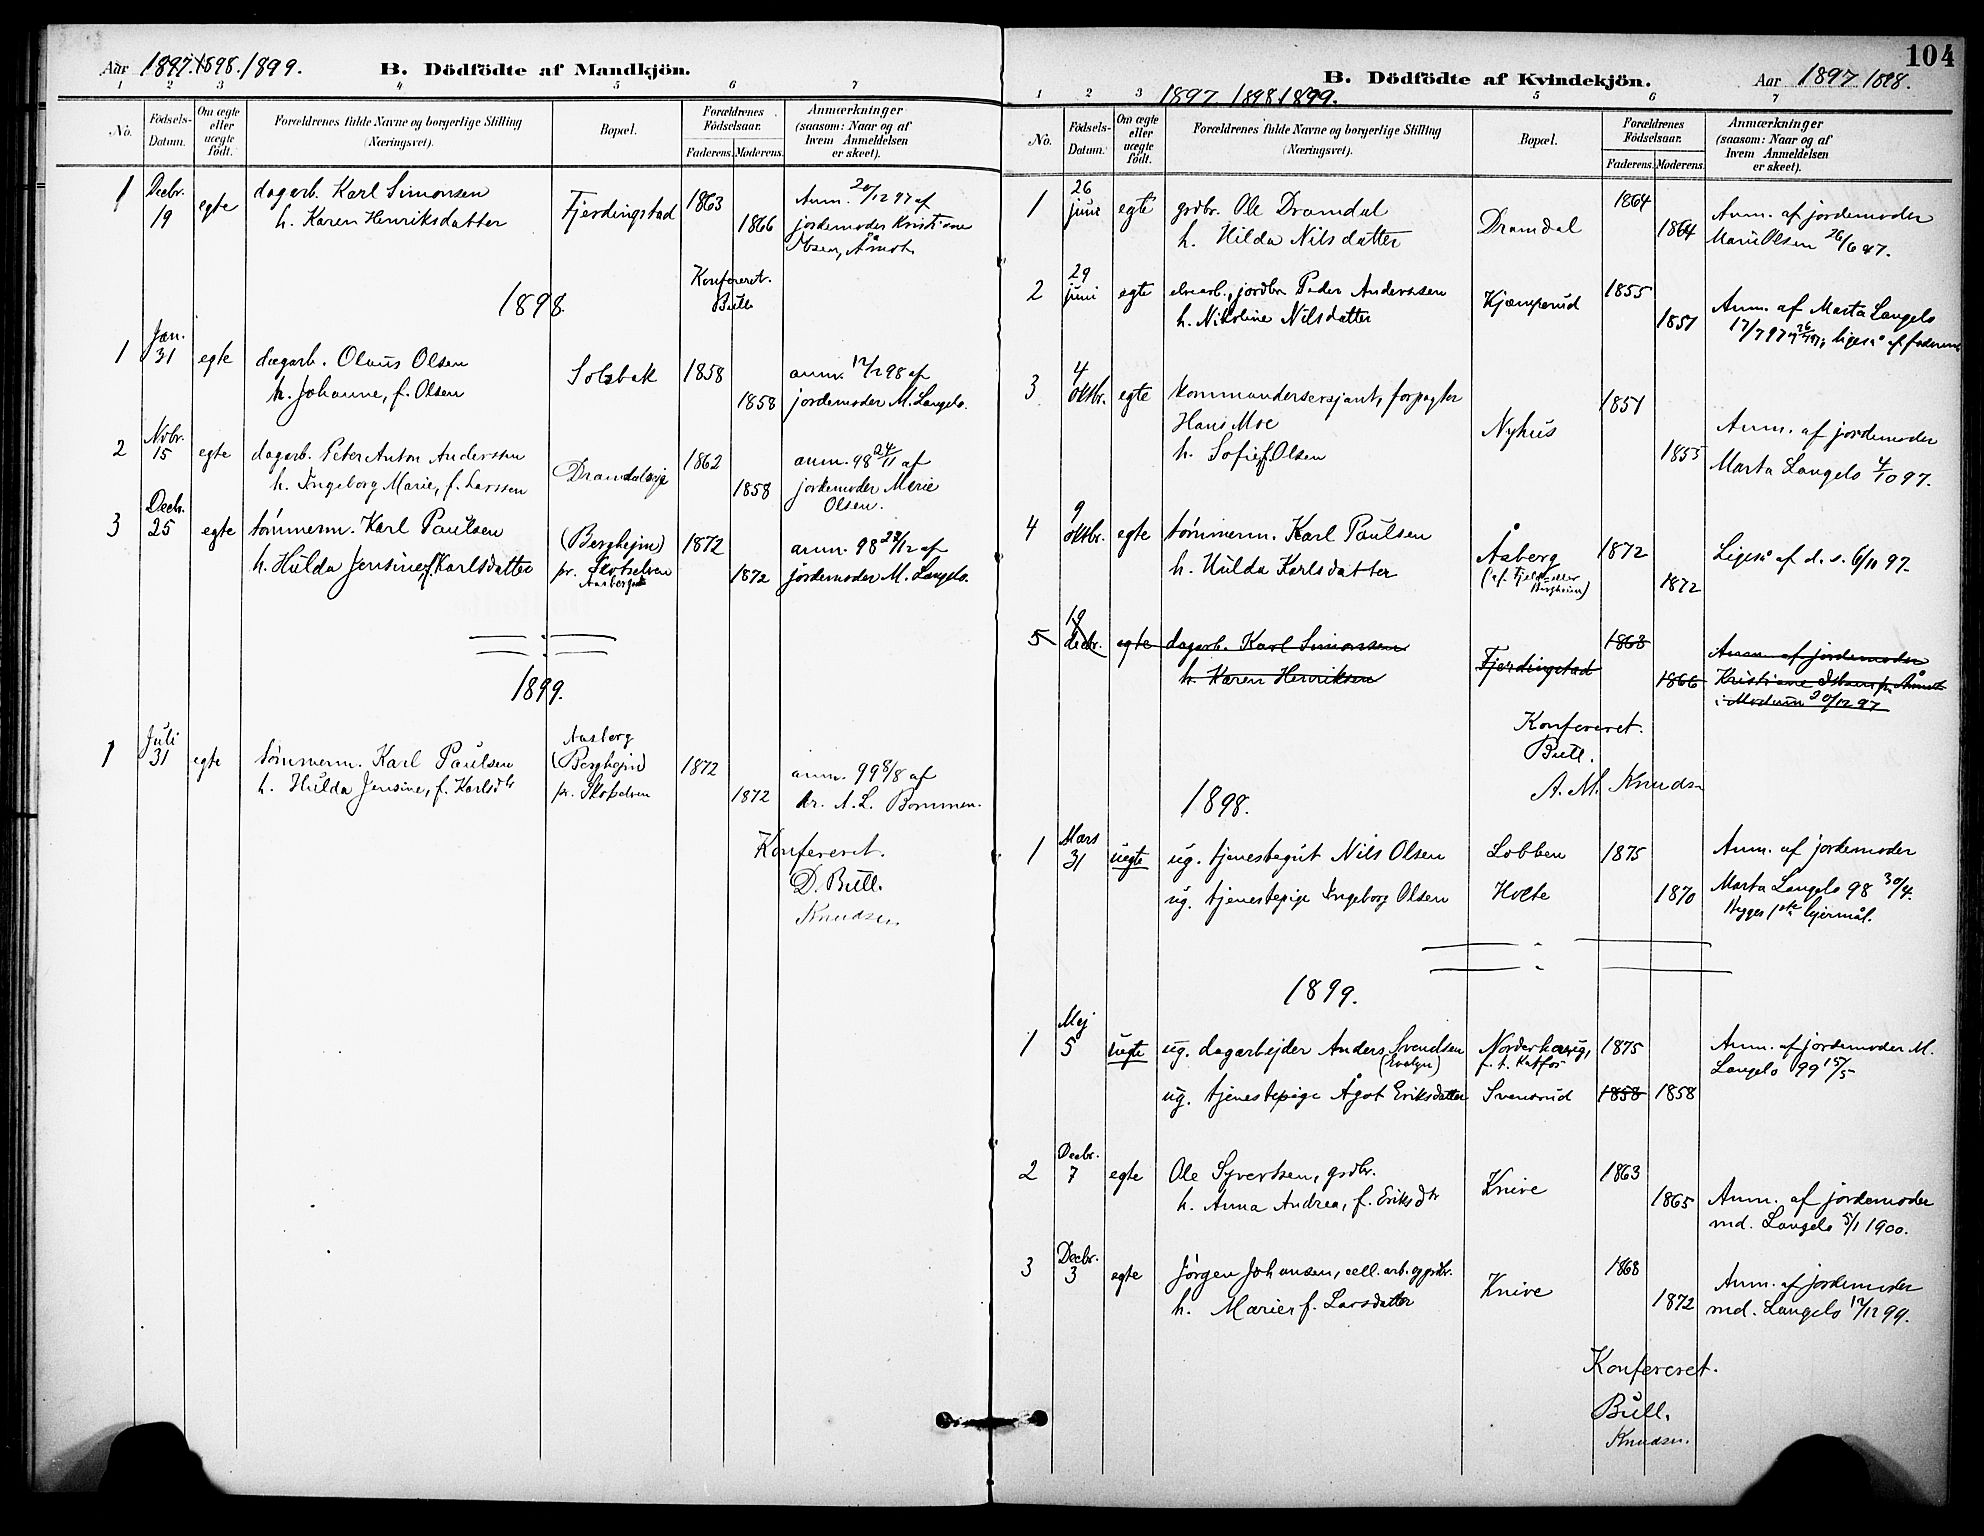 Aar 1897. 1898. 1899.
B. Dödfödte af Mandkjön.
1 2 3 4 5 6 7
No.
Födsels-Datum.
Om ægte eller uægte födt.
Forældrenes fulde Navne og borgerlige Stilling
(Næringsvei).
Bopæl.
Forældrenes Födselsaar.
Faderens. Moderens.
Anmærkninger
(saasom: Naar og af
hvem Anmeldelsen
er skeet).
1 Decbr. 19 egte dagarb. Karl Simonsen Fjerdingstad 1863 Anm. 20/12 97 af
h. Karen Henriksdatter 1866 jordemoder Kristiane
Ibsen, Åmot.
Konfereret.
Bull
1898.
1 Jan. 31 egte dagarb. Olaus Olsen Solbak 1858 anm. 12/2 98 af
h. Johanne, f. Olsen 1858 jordemoder M. Langelo.
2 Novbr. 15 egte dagarb. Peter Anton Anderssen Dramdalseje 1862 anm. 98 24/11 af
h. Ingeborg Marie, f. Larssen 1858 jordemoder Marie
Olsen.
3 Decbr. 25 egte tømmerm. Karl Paulsen (Berghejm) 1872 anm. 98 28/12 af
h. Hulda Jensine, f. Karlsdatter pr. Skotselven 1872 jordemoder M. Langelo.
1899.
1 Juli 31 egte tømmerm. Karl Paulsen Aasberg
(Berghejm) 1872 anm. 99 8/8 af
h. Hulda Jensine, f. Karlsdtr pr. Skotselven 1872 dr. A. L. Bommen.
Konfereret.
D. Bull.
Knudsen.
104
B. Dödfödte af Kvindekjön.
Aar 1897 1898.
1897 1898 1899.
1 2 3 5 6 7
No.
Födsels-Datum.
Om ægte eller uægte födt.
Forældrenes fulde Navne og borgerlige Stilling
(Næringsvei).
Bopæl.
Forældrenes Födselsaar.
Faderens. Moderens.
Anmærkninger
(saasom: Naar og af
hvem Anmeldelsen
er skeet).
1 26 juni egte grdbr. Ole Dramdal Dramdal 1864 Anm. af jordemoder
h. Hilda Nilsdatter 1864 Marie Olsen 26/6 97.
2 29 juni egte elvearb., jordbr. Peder Anderssen Kjæmperud 1855 Anm. af Marta Langelo
h. Nikoline Nilsdatter 1851 17/7 97, ligeså af faderen
3 4 oktbr. egte kommandersersjant, forpagter 1851
Hans Moe Nyhus Anm. af jordemoder
h. Sofie f. Olsen 1855 Marta Langelo 4/10 97.
4 9 oktbr. egte tømmerm. Karl Paulsen Aasberg 1872 Ligeså af d. s. 6/10 97.
h. Hulda Karlsdatter 1872
5 19 decbr. egte dagarb. Karl Simonssen Fjerdingstad 1863 Anm. af jordemoder
h. Karen Henriksen 1866 Kristiane Ibsen pr. Åmot
i Modum 20/12 97
Konfereret.
Bull.
A. M. Knudsen
1898.
1 Mars 31 uegte ug. tjenestegut Nils Olsen Lobben 1875 Anm. af jordemoder
ug. tjenestepige Ingeborg Olsen Holte 1870 Marta Langelo 98 30/4.
Begges 1ste lejermål.
1899.
1 Mej 5 uegte ug. dagarbejder Anders Svendsen Norderhaug, 1875 Anm. af jordemoder M.
f. t. Katfos Langelo 99 15/5
ug. tjenestepige Ågot Eriksdatter Svensrud 1858 1858
2 Decbr. 7 egte Ole Syvertsen, grdbr. Knive 1863
h. Anna Andrea, f. Eriksdtr 1865 Anm. af jordemoder
md. Langelo 5/1 1900.
3 Decbr. 3 egte Jørgen Johansen, cell. arb. og grdbr. Knive 1868 Anm. af jordemoder
h. Marie f. Larsdatter 1872 md. Langelo 12/12 99.
Konfereret.
Bull.
Knudsen.